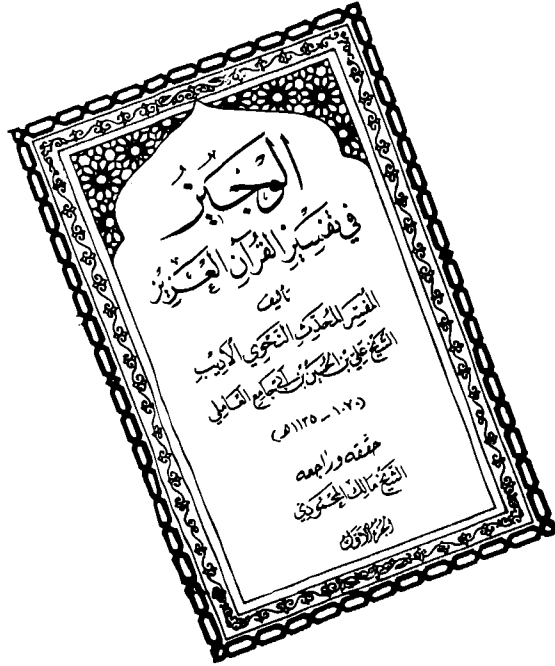 الوجيز
في تفسير القرآن العزيز
تأليف
المفسر المحدث النحوي الأديب
الشيخ علي بن الحسين بن أبي جامع العاملي
(١٠٧٠ - ١١٣٥هـ)
حققه وراجعه
الشيخ مالك المحمودي
الجزء الأول